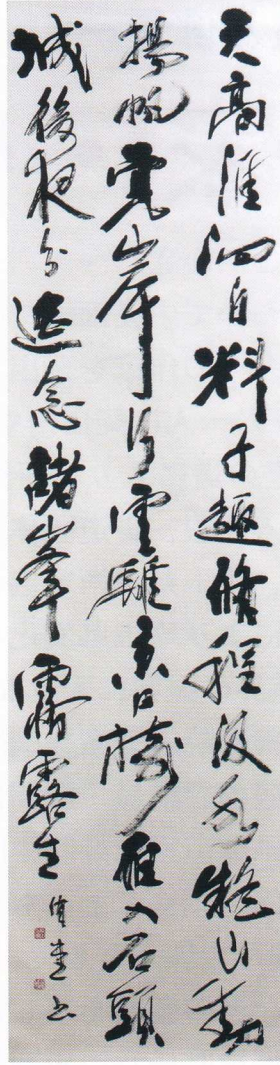 天高淮泗白料子趨脩程汲水疑山動
揚帆覺岸行雲離京口樹雁入石頭
城後夜分遥念諸峯霧露生
堂書